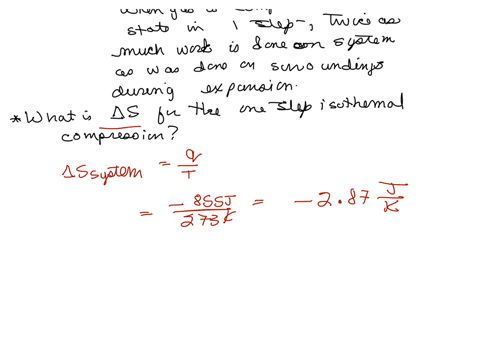 state in 1 step, Twice as
much work is done on system
as was done on surroundings
during expansion.
* What is ΔS for the one step isothermal
compression?
ΔS system = q/T
= -855J/273K = -2.87 J/K